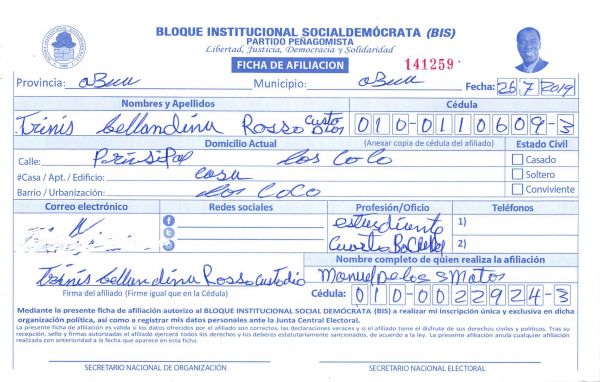 BLOQUE INSTITUCIONAL SOCIALDEMÓCRATA (BIS)
PARTIDO PEÑAGOMISTA
Libertad, Justicia, Democracia y Solidaridad
FICHA DE AFILIACION
141259
Provincia: Municipio: Fecha: 26 7 2019
Nombres y Apellidos
Cédula
Trinis bellandina Rosso Custodios
010-0110609-3
Domicilio Actual
(Anexar copia de cédula del afiliado)
Estado Civil
Calle: Prinsipal los CoCo
Casado
#Casa / Apt. / Edificio: casa
Soltero
Barrio / Urbanización: los CoCo
Conviviente
Correo electrónico
Redes sociales
Profesión/Oficio
Teléfonos
estudiente
1)
Cuarto
2)
Nombre completo de quien realiza la afiliación
Trinis bellandina Rosso Custodio
Manuel De los S Matos
Firma del afiliado (Firme igual que en la Cédula)
Cédula: 010-0022924-3
Mediante la presente ficha de afiliación autorizo al BLOQUE INSTITUCIONAL SOCIAL DEMÓCRATA (BIS) a realizar mi inscripción única y exclusiva en dicha
organización política, así como a registrar mis datos personales ante la Junta Central Electoral.
La presente ficha de afiliación es válida si los datos ofrecidos por el afiliado son correctos, las declaraciones veraces y si el afiliado tiene el disfrute de sus derechos civiles y políticos. Tras su
recepción, sello y firmas autorizadas el afiliado ejercerá todos los derechos y los deberes estatutariamente sancionados, de acuerdo a la ley. La presente afiliación anula cualquier afiliación
realizada con anterioridad a la fecha que aparece en esta ficha.
SECRETARIO NACIONAL DE ORGANIZACIÓN
SECRETARIO NACIONAL ELECTORAL